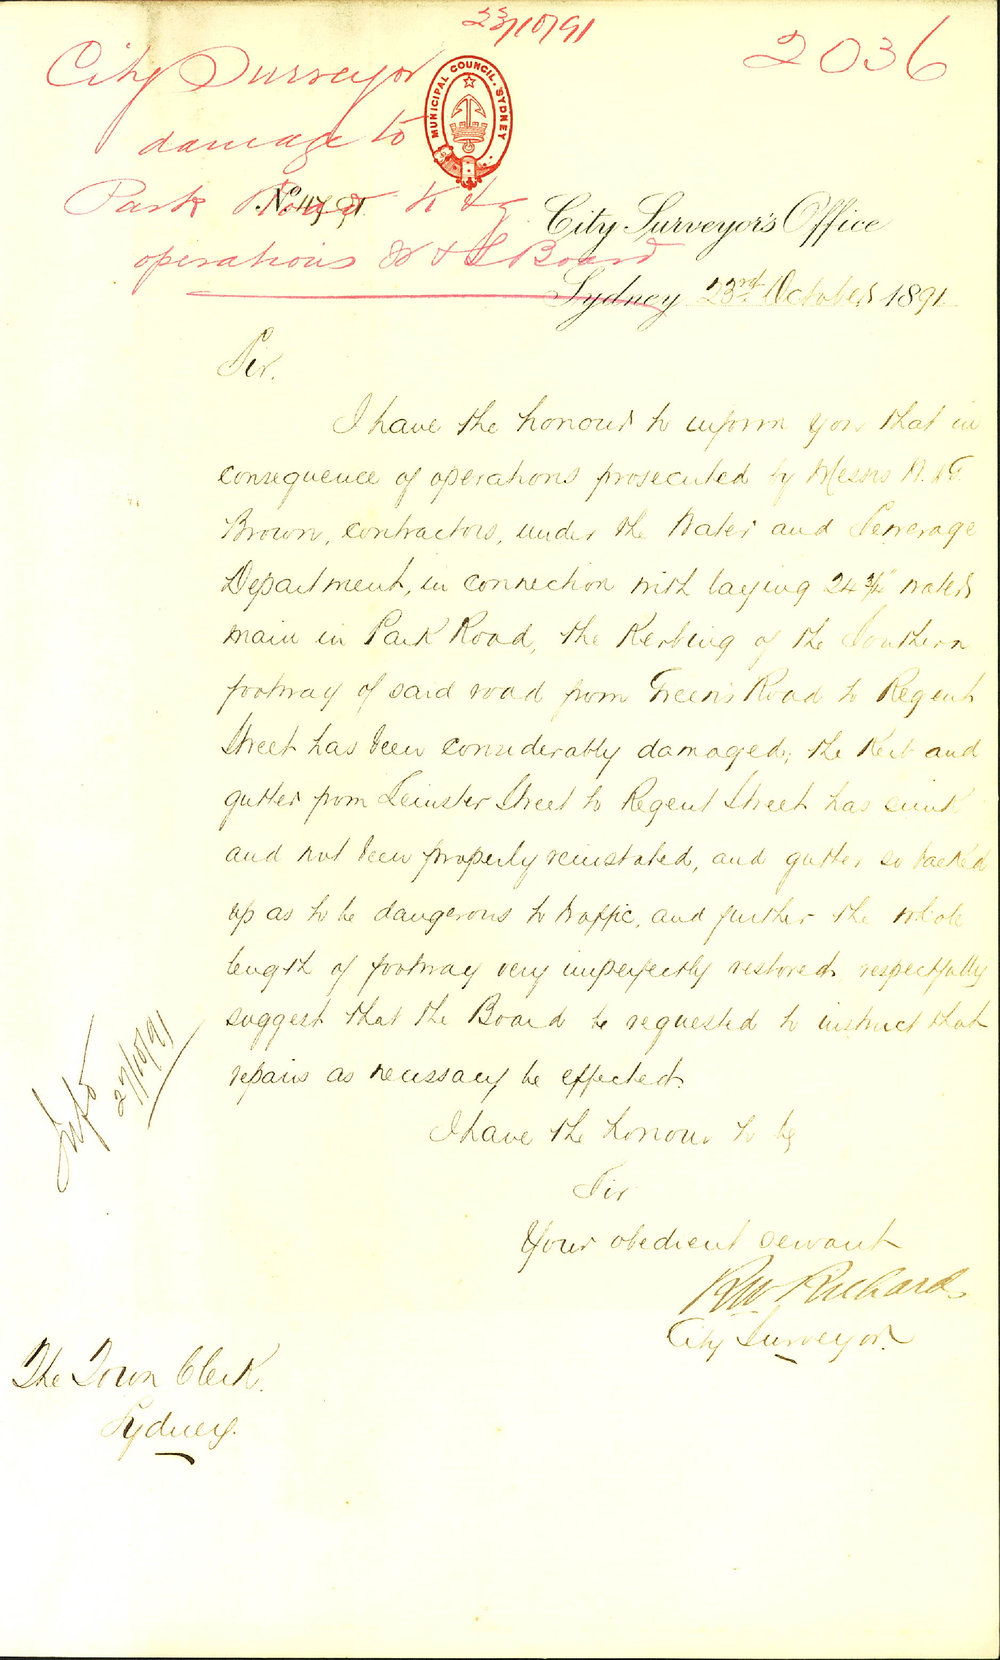 23/10/91
2036
City Surveyor
damage to
Park Road K & g
operations W & S Board
MUNICIPAL COUNCIL. SYDNEY
City Surveyor's Office
Sydney 23rd October 1891
Sir.
I have the honour to inform you that in
consequence of operations prosecuted by Messrs A. & F.
Brown, contractors, under the Water and Sewerage
Department, in connection with laying 24 3/4" water
main in Park Road, the Kerbing of the Southern
footway of said road from Green's Road to Regent
Street has been considerably damaged; the Kerb and
gutter from Leinster Street to Regent Street has sunk
and not been properly reinstated, and gutter so backed
up as to be dangerous to traffic, and further the whole
length of footway very imperfectly restored, respectfully
suggest that the Board be requested to instruct that
repairs as necessary be effected.
I have the honour to be
Sir
Your obedient servant
RW Richards
City Surveyor.
The Town Clerk.
Sydney.
27/10/91